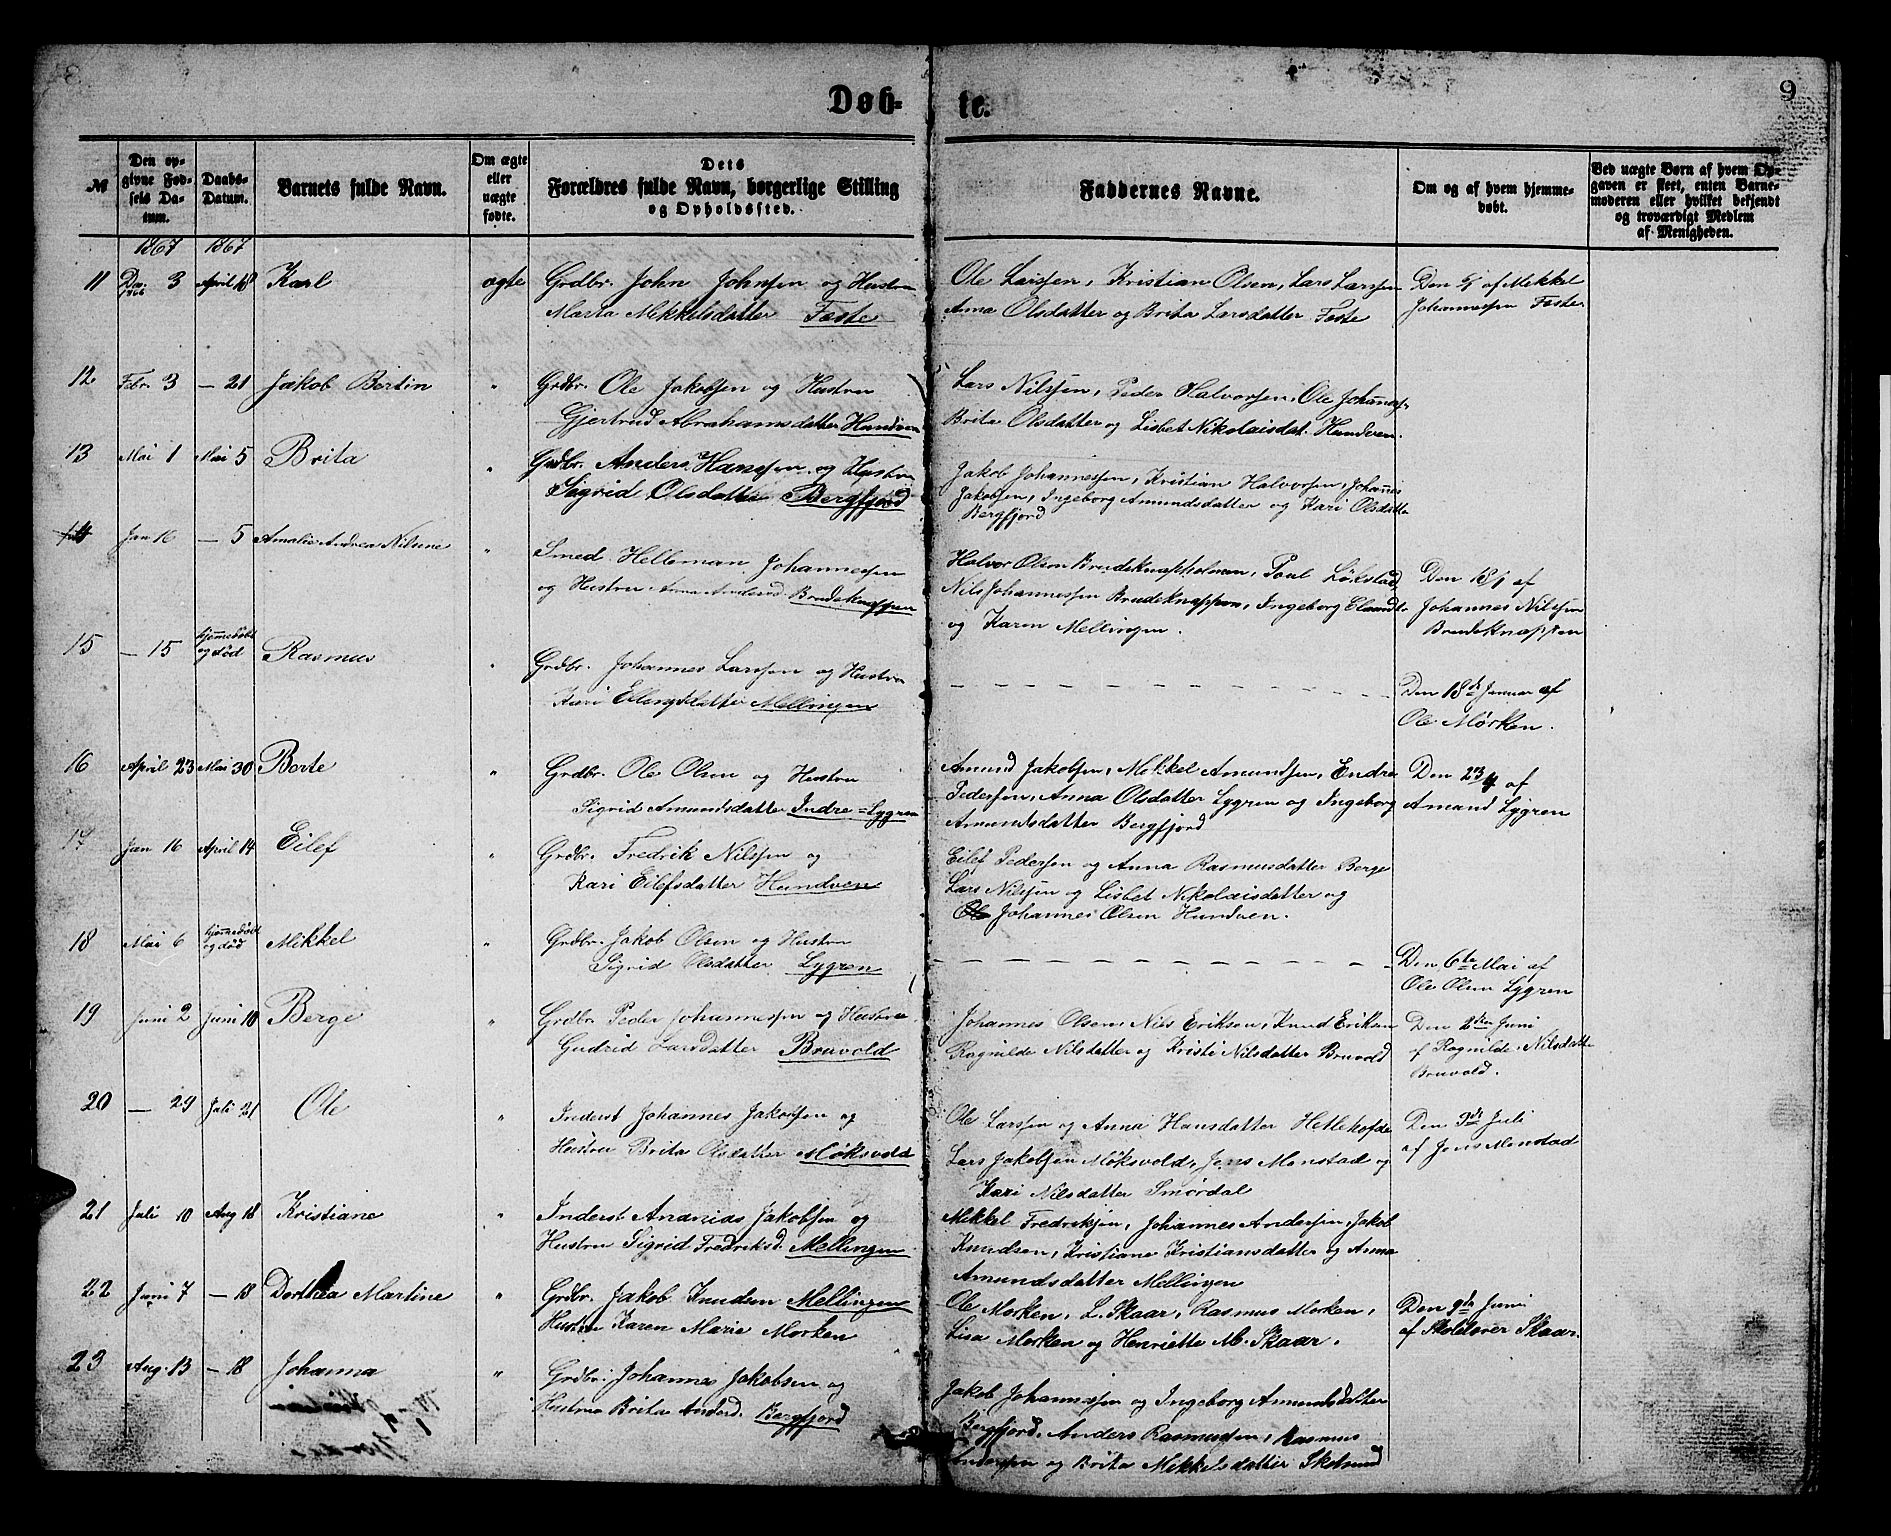 Døb-te.
9
№
Den opgivne Fødsels Datum.
Daabs-Datum.
Barnets fulde Navn.
Om ægte eller uægte fødte.
Dets Forældres fulde Navn, borgerlige Stilling og Opholdssted.
Faddernes Navne.
Om og af hvem hjemmedøbt.
Ved uægte Børn af hvem Opgaven er skeet, enten Barnemoderen eller hvilket bekjendt og troværdigt Medlem af Menigheden.
1867 1867
11 Dec. 1866 3 April 18 Karl ægte Grdbr. John Johnsen og Hustru
Marta Mikkelsdatter Feste
Ole Larssen, Kristian Olsen, Lars Larssen
Anna Olsdatter og Brita Larsdatter Feste
Den 6/1 af Mikkel
Johannessen Feste
12 Febr. 3 — 21 Jakob Bertin " Grdbr. Ole Jakobsen og Hustru
Gjertrud Abrahamsdatter Hundven
Lars Nilssen, Peder Halvorsen, Ole Johannes.
Brita Olsdatter og Lisbet Nikolaisdat. Hundven.
13 Mai 1 Mai 5 Brita " Grdbr. Anders Hanssen og Hustru
Sigrid Olsdatter Bergfjord
Jakob Johannessen, Kristian Halvorsen, Johannes
Jakobsen, Ingeborg Amundsdatter og Kari Olsdatte
Bergfjord
14 Jan 16 — 5 Amalie Andrea Nilsine " Smed Helleman Johannessen
og Hustru Anna Andersd. Brudeknappen
Halvor Olsen Brudeknapholmen, Poul Løkstad,
Nils Johannessen Brudeknappen, Ingeborg Elamdt.
og Karen Mellingen.
Den 18/1 af
Johannes Nilssen
Brudeknappen
15 — 15 hjemmedøbt og død Rasmus " Grdbr. Johannes Larssen og Hustru
Kari Ellingsdatter Mellingen
Den 18de Januar af
Ole Mørken.
16 April 23 Mai 30 Berte " Grdbr. Ole Olsen og Hustru
Sigrid Amundsdatter Indre=Lygren
Amund Jakobsen, Mikkel Amundsen, Endre
Pedersen, Anna Olsdatter Lygren og Ingeborg
Amundsdatter Bergfjord
Den 23/4 af
Amund Lygren
17 Jan 16 April 14 Eilef " Grdbr. Fredrik Nilssen og
Kari Eilefsdatter Hundven
Eilef Pedersen og Anna Rasmusdatter Berge
Lars Nilssen og Lisbet Nikolaisdatter og
Ole Johannes Olsen Hundven.
18 Mai 6 hjemmedøbt og død Mikkel " Grdbr. Jakob Olsen og Hustru
Sigrid Olsdatter Lygren
Den 6te Mai af
Ole Olsen Lygren
19 Juni 2 Juni 10 Berge " Grdbr. Peder Johannessen og Hustru
Gudrid Larsdatter Bruvold
Johannes Olsen, Nils Eriksen, Knud Eriksen
Ragnilde Nilsdatter og Kristi Nilsdatter Bruvold
Den 2den Juni
af Ragnilde Nilsdatt.
Bruvold.
20 — 29 Juli 21 Ole " Inderst Johannes Jakobsen og
Hustru Brita Olsdatter Møksvold
Ole Larssen og Anna Hansdatter Hetlehofde
Lars Jakobsen Møksvold, Jens Monstad og
Kari Nilsdatter Smørdal
Den 3de Juli
af Jens Monstad
21 Juli 10 Aug 18 Kristiane " Inderst Ananias Jakobsen og
Hustru Sigrid Fredriksd. Mellingen
Mikkel Fredriksen, Johannes Andersen, Jakob
Knudsen, Kristiane Kristiansdatter og Anna
Amundsdatter Mellingen
22 Juni 7 — 18 Dorthea Martine " Grdbr. Jakob Knudsen Mellingen
Hustru Karen Marie Morken
Ole Morken, L. Skaar, Rasmus Morken,
Lisa Morken og Henriette M. Skaar.
Den 9de Juni
af Skolelærer Skaar.
23 Aug. 13 — 18 Johanna " Grdbr. Johannes Jakobsen og
Hustru Brita Andersd. Bergfjord
Jakob Johannessen og Ingeborg Amundsdatter
Bergfjord, Anders Rasmussen, Rasmus
Anderssen og Brita Mikkelsdatter Skotsund